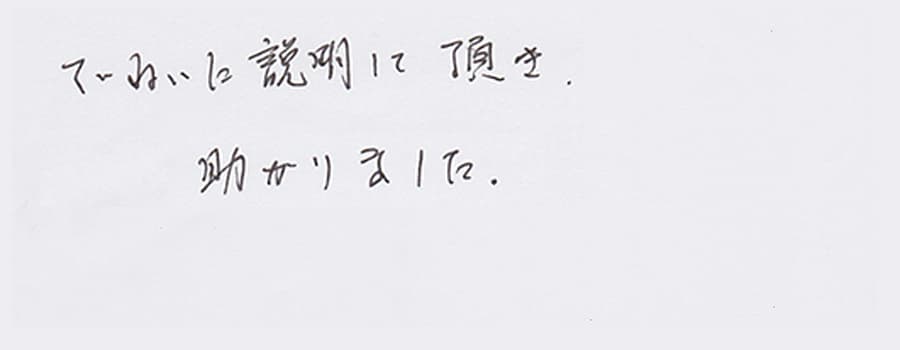 ていねいに説明して頂き.
助かりました.